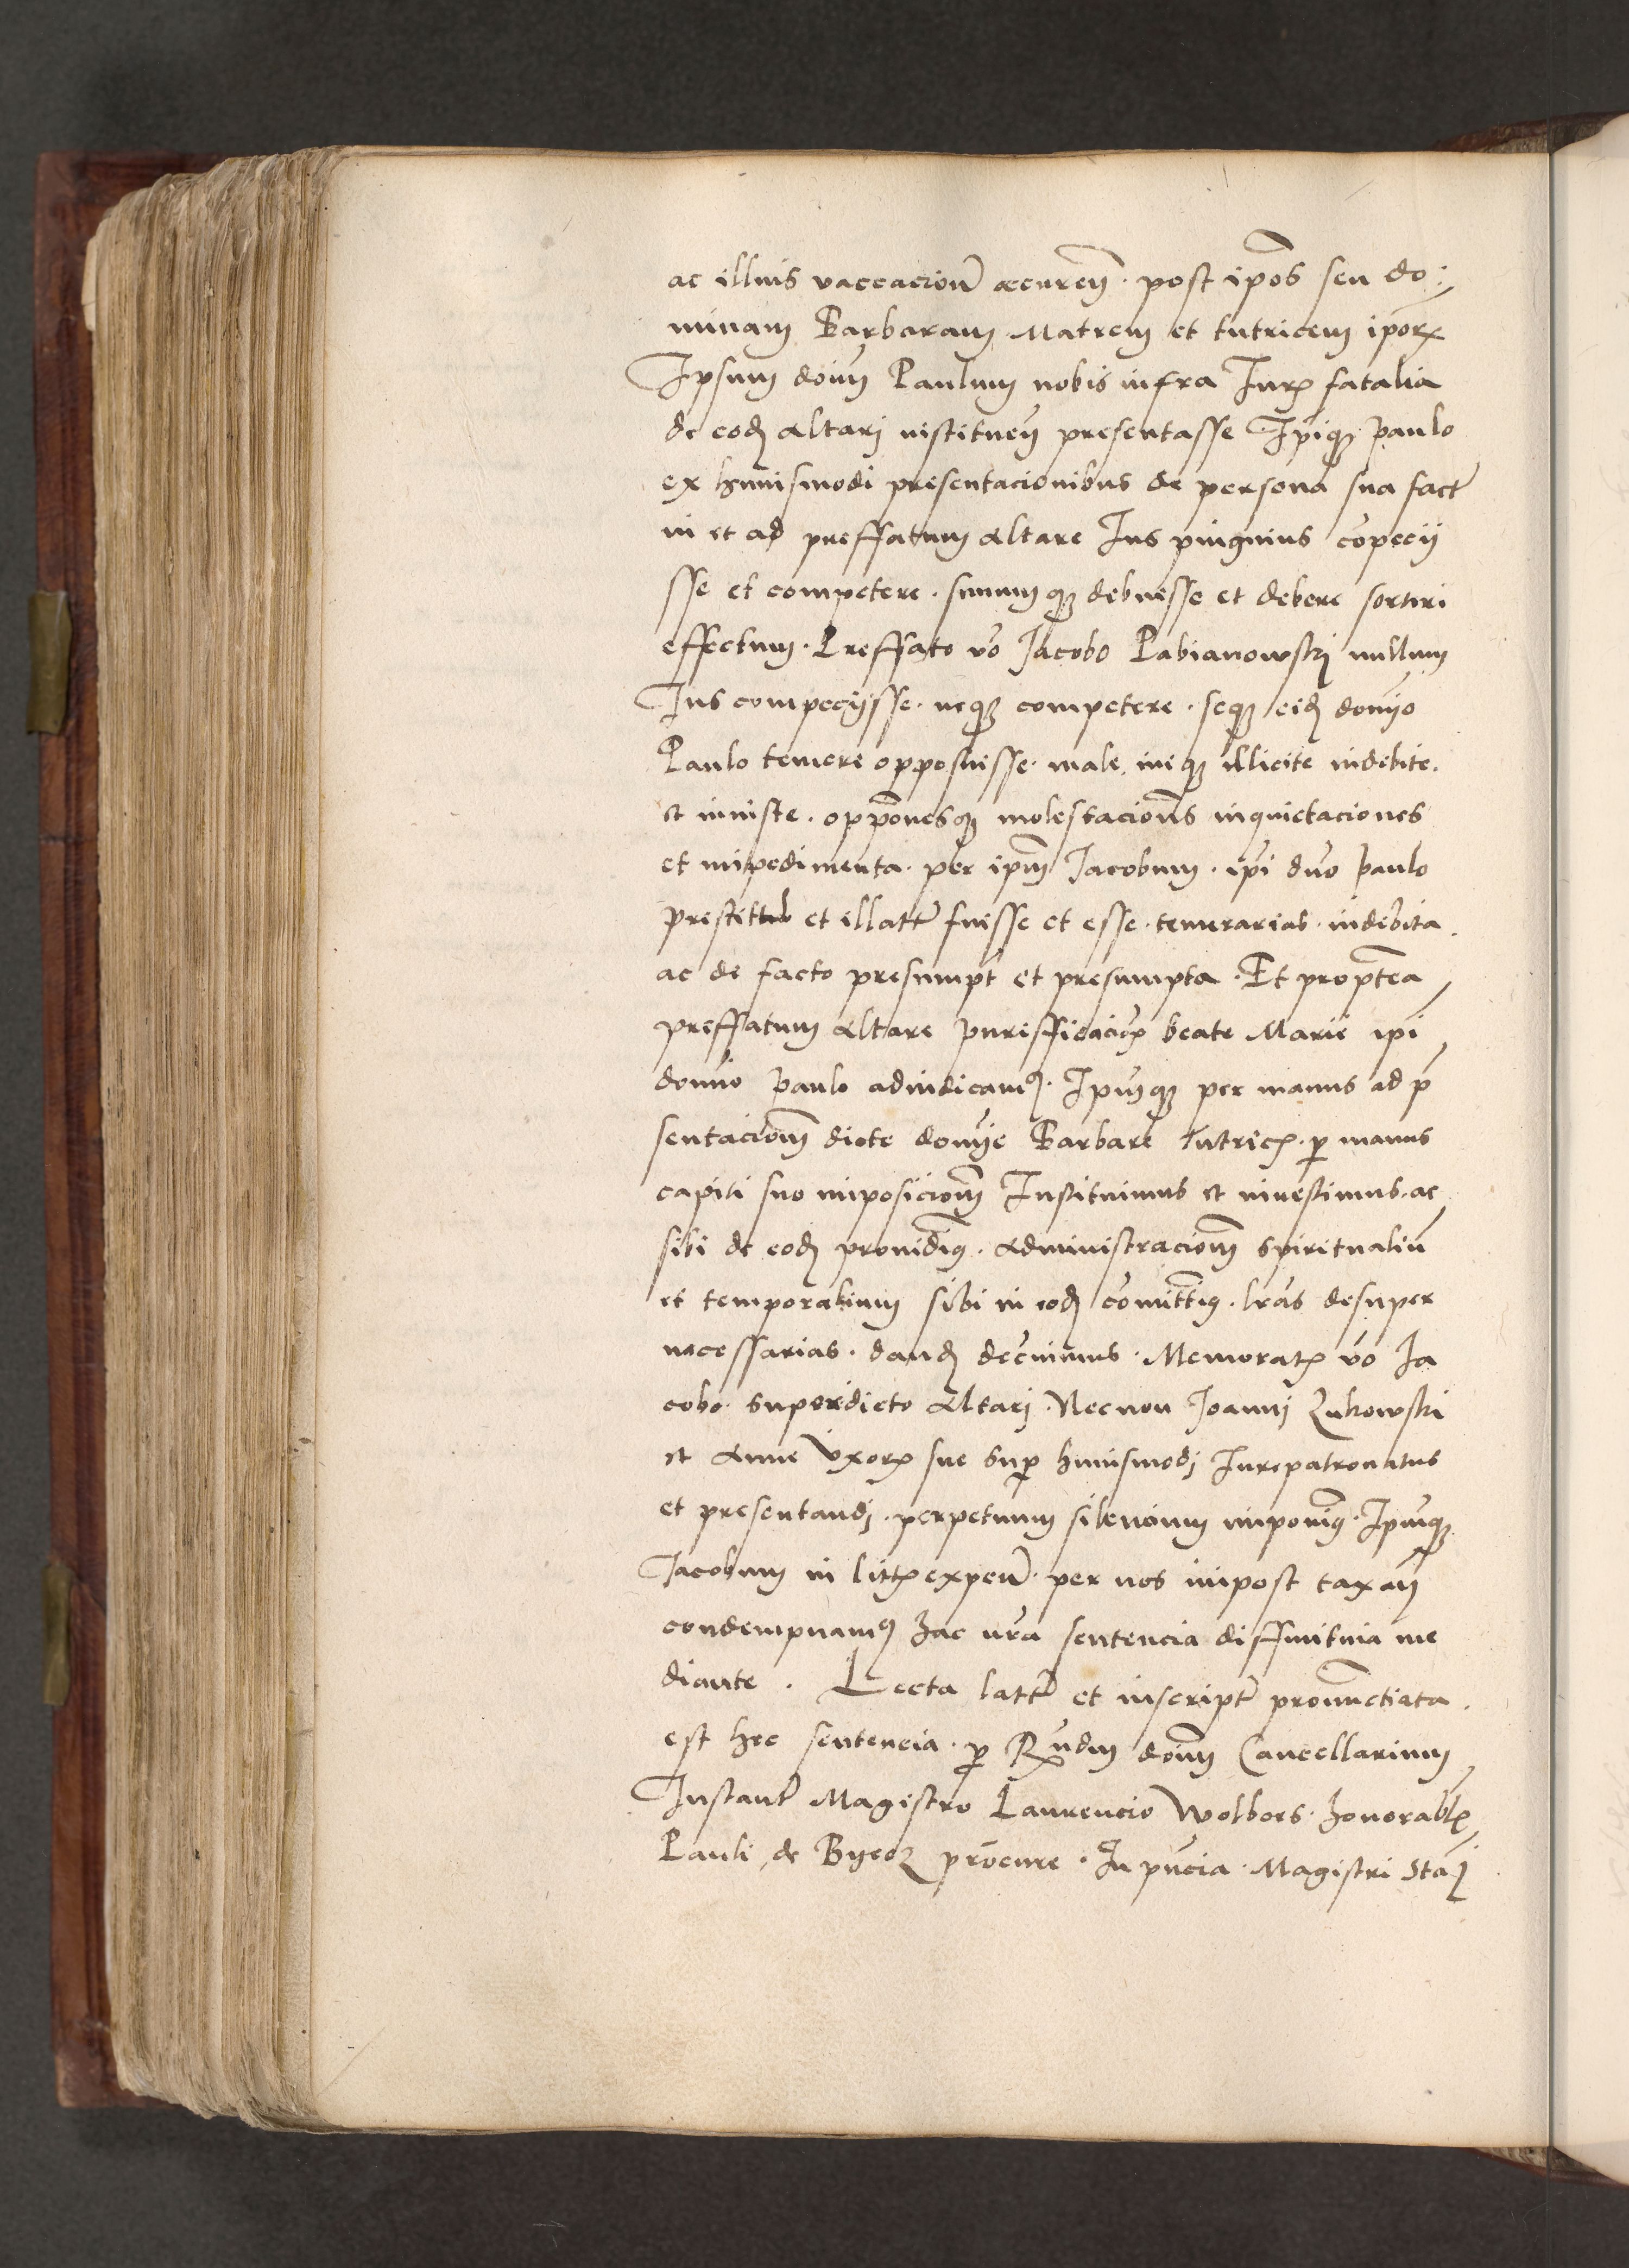 ac illius vaccacionē occurēn̄ · post ip̄os seu do
minam Barbaram Matrem et tutricem ip̄orꝝ
Ipsum dom̄ Paulum nobis infra Juris fatalia
de eod̄ Altari instituen̄ presentasse Ip̄iqꝫ Paulo
ex hmōismodi presentacionibus de persona sua fact̄
in et ad preffatum Altare Ius pinguius cōpecii
sse et competere · suumqꝫ debuisse et debere sortiri
effectum · Preffato v̄o Jacobo Pabianowskj nullum
Ius compeciisse · neqꝫ competere · seqꝫ eid̄ domīo
Paulo temere opposuisse · male · iniqꝫ illicite indebite ·
et iniuste · opp̄ones qꝫ molestacion̄s inquietaciones
et impedimenta · per ip̄m Jacobum · ip̄i dn̄o Paulo
prestit et illat̄ fuisse et esse · temerarias · indebita
ac de facto presumpt̄ et presumpta · Et propt̄ea
preffatum Altare purifficacīs beate Marie ip̄i
domīo Paulo adiudicamꝰ · Ip̄umqꝫ per manus ad p̄
sentacionem̄ dicte domīe Barbare Tutricis · ꝑ manus
capiti suo imposicionem̄ Instituimus et inuestimus · ac
sibi de eod̄ prouidemꝰ · Administracionem̄ spiritualiū
et temporalium sibi in eod̄ cōmittimꝰ · lr̄as desuper
necessarias · dand̄ decr̄uimus · Memorato v̄o Ja
cobo superdicto Altari · Necnon Joannj Zukowski
et Anne Vxoris sue suꝑ huiusmodj Iurepatronatus
et presentandj · perpetuum silencium imponimꝰ · Ip̄umqꝫ
Jacobum in litis expen̄ · per nos inpost taxan̄
condempnamꝰ hac nr̄a sentencia diffinitiua me
diante · Lecta lat̄ et inscript̄ pronunctiata
est hec sentencia · ꝑ R̄ndum dom̄ Cancellarium
Instant̄ Magistro Laurencio Wolbors · honorabl̄is
Pauli de Byecz procure · In pn̄cia · Magistri Stan̄